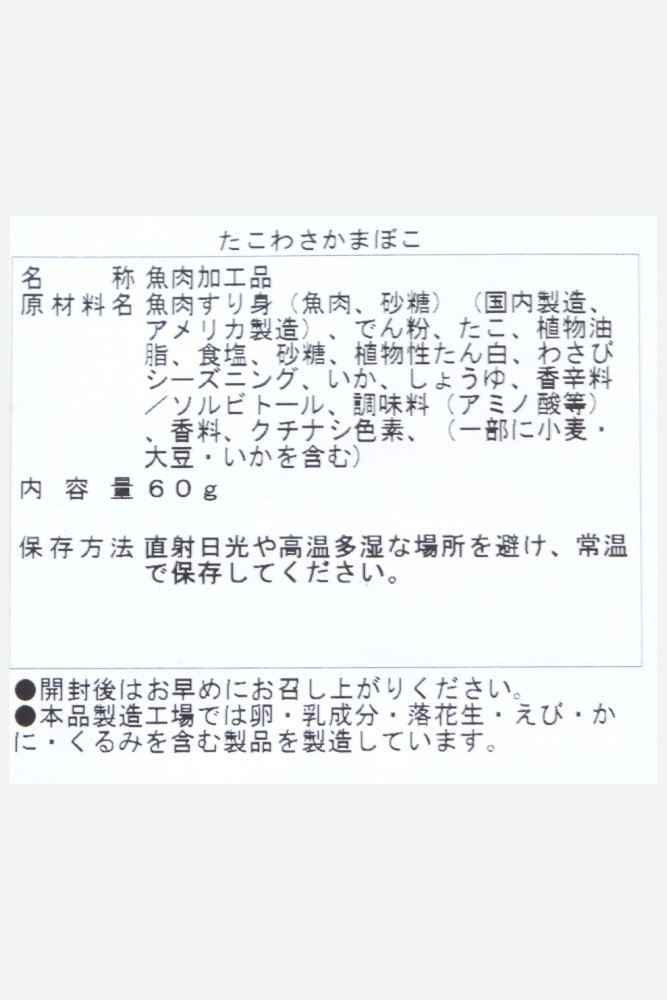 たこわさかまぼこ
名称 魚肉加工品
原材料名 魚肉すり身（魚肉、砂糖）（国内製造、
アメリカ製造）、でん粉、たこ、植物油
脂、食塩、砂糖、植物性たん白、わさび
シーズニング、いか、しょうゆ、香辛料
／ソルビトール、調味料（アミノ酸等）
、香料、クチナシ色素、（一部に小麦・
大豆・いかを含む）
内容量 ６０ｇ
保存方法 直射日光や高温多湿な場所を避け、常温
で保存してください。
●開封後はお早めにお召し上がりください。
●本品製造工場では卵・乳成分・落花生・えび・か
に・くるみを含む製品を製造しています。